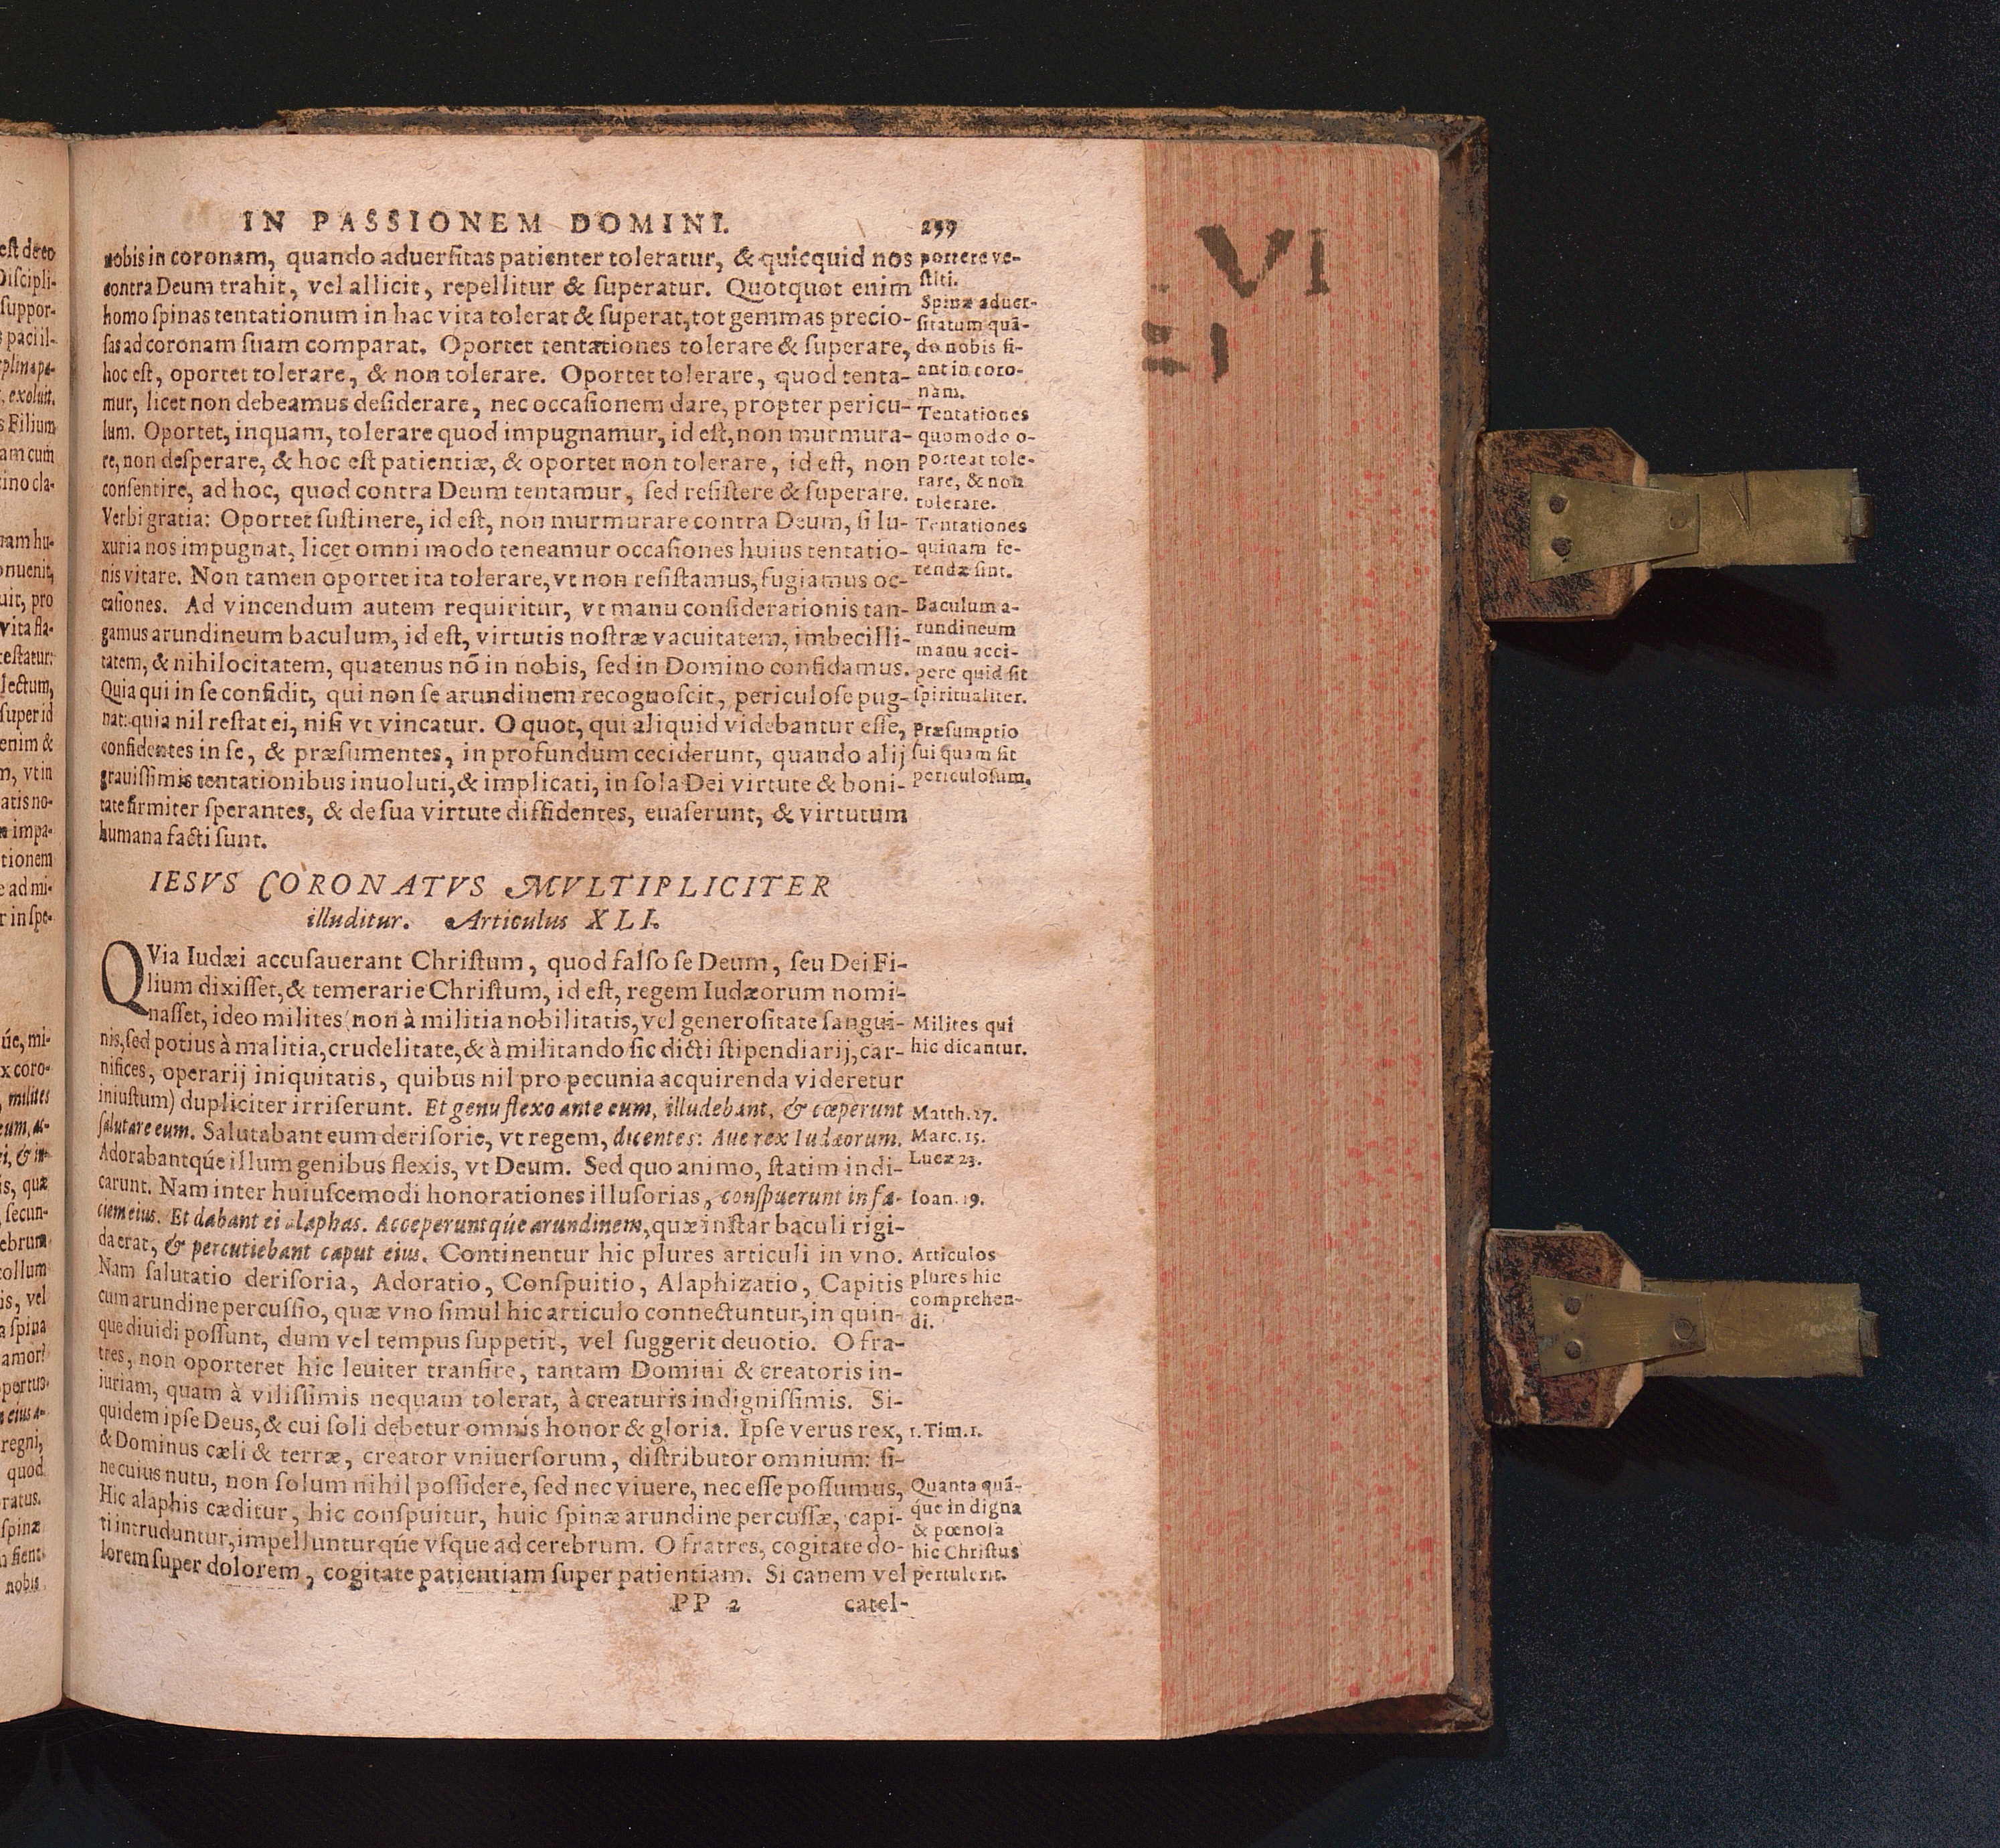 IN PASSIONEM DOMINI. 299
nobis in coronam, quando aduerſitas patienter toleratur, & quicquid nos
contra Deum trahit, vel allicit, repellitur & ſuperatur. Quotquot enim
homo ſpinas tentationum in hac vita tolerat & ſuperat, tot gemmas precio-
ſas ad coronam ſuam comparat. Oportet tentationes tolerare & ſuperare,
hoc eſt, oportet tolerare, & non tolerare. Oportet tolerare, quod tenta-
mur, licet non debeamus deſiderare, nec occaſionem dare, propter pericu-
lum. Oportet, inquam, tolerare quod impugnamur, id eſt, non murmura-
re, non deſperare, & hoc eſt patientiæ, & oportet non tolerare, id eſt, non
conſentire, ad hoc, quod contra Deum tentamur, ſed reſiſtere & ſuperare.
Verbi gratia: Oportet ſuſtinere, id eſt, non murmurare contra Deum, ſi lu-
xuria nos impugnat, licet omni modo teneamur occaſiones huius tentatio-
nis vitare. Non tamen oportet ita tolerare, vt non reſiſtamus, fugiamus oc-
caſiones. Ad vincendum autem requiritur, vt manu conſiderationis tan-
gamus arundineum baculum, id eſt, virtutis noſtræ vacuitatem, imbecilli-
tatem, & nihilocitatem, quatenus nõ in nobis, ſed in Domino confidamus.
Quia qui in ſe confidit, qui non ſe arundinem recognoſcit, periculoſe pug-
nat: quia nil reſtat ei, niſi vt vincatur. O quot, qui aliquid videbantur eſſe,
confidentes in ſe, & præſumentes, in profundum ceciderunt, quando alij
grauiſſimis tentationibus inuoluti, & implicati, in ſola Dei virtute & boni-
tate firmiter ſperantes, & de ſua virtute diffidentes, euaſerunt, & virtutum
humana facti ſunt.
portere ve-
ſtiti.
Spinæ aduer-
ſitatum quã-
do nobis fi-
ant in coro-
nam.
Tentationes
quomodo o-
porteat tole-
rare, & non
tolerare.
Tentationes
quinam fe-
rendæ ſint.
Baculum a-
rundineum
manu acci-
pere quid ſit
ſpiritualiter.
Præſumptio
ſui quam ſit
periculoſum.
IESVS CORONATVS MVLTIPLICITER
illuditur. Articulus XLI.
QVia Iudæi accuſauerant Chriſtum, quod falſo ſe Deum, ſeu Dei Fi-
lium dixiſſet, & temerarie Chriſtum, id eſt, regem Iudæorum nomi-
naſſet, ideo milites (non à militia nobilitatis, vel generoſitate ſangui-
nis, ſed potius à malitia, crudelitate, & à militando ſic dicti ſtipendiarij, car-
nifices, operarij iniquitatis, quibus nil pro pecunia acquirenda videretur
iniuſtum) dupliciter irriſerunt. Et genu flexo ante eum, illudebant, & cœperunt
ſalutare eum. Salutabant eum deriſorie, vt regem, dicentes: Aue rex Iudæorum.
Adorabantq́ue illum genibus flexis, vt Deum. Sed quo animo, ſtatim indi-
carunt. Nam inter huiuſcemodi honorationes illuſorias, conſpuerunt in fa-
ciem eius. Et dabant ei alaphas. Acceperuntq́ue arundinem, quæ inſtar baculi rigi-
da erat, & percutiebant caput eius. Continentur hic plures articuli in vno.
Nam ſalutatio deriſoria, Adoratio, Conſpuitio, Alaphizatio, Capitis
cum arundine percuſſio, quæ vno ſimul hic articulo connectuntur, in quin-
que diuidi poſſunt, dum vel tempus ſuppetit, vel ſuggerit deuotio. O fra-
tres, non oporteret hic leuiter tranſire, tantam Domini & creatoris in-
iuriam, quam à viliſſimis nequam tolerat, à creaturis indigniſſimis. Si-
quidem ipſe Deus, & cui ſoli debetur omnis honor & gloria. Ipſe verus rex,
& Dominus cæli & terræ, creator vniuerſorum, diſtributor omnium: ſi-
ne cuius nutu, non ſolum nihil poſſidere, ſed nec viuere, nec eſſe poſſumus,
Hic alaphis cæditur, hic conſpuitur, huic ſpinæ arundine percuſſæ, capi-
ti intruduntur, impellunturq́ue vſque ad cerebrum. O fratres, cogitate do-
lorem ſuper dolorem, cogitate patientiam ſuper patientiam. Si canem vel
Milites qui
hic dicantur.
Matth. 27.
Marc. 15.
Lucæ 23.
Ioan. 19.
Articulos
plures hic
comprehen-
di.
1. Tim. 1.
Quanta quã-
q́ue indigna
& pœnoſa
hic Chriſtus
pertulerit.
PP 2 catel-
VI